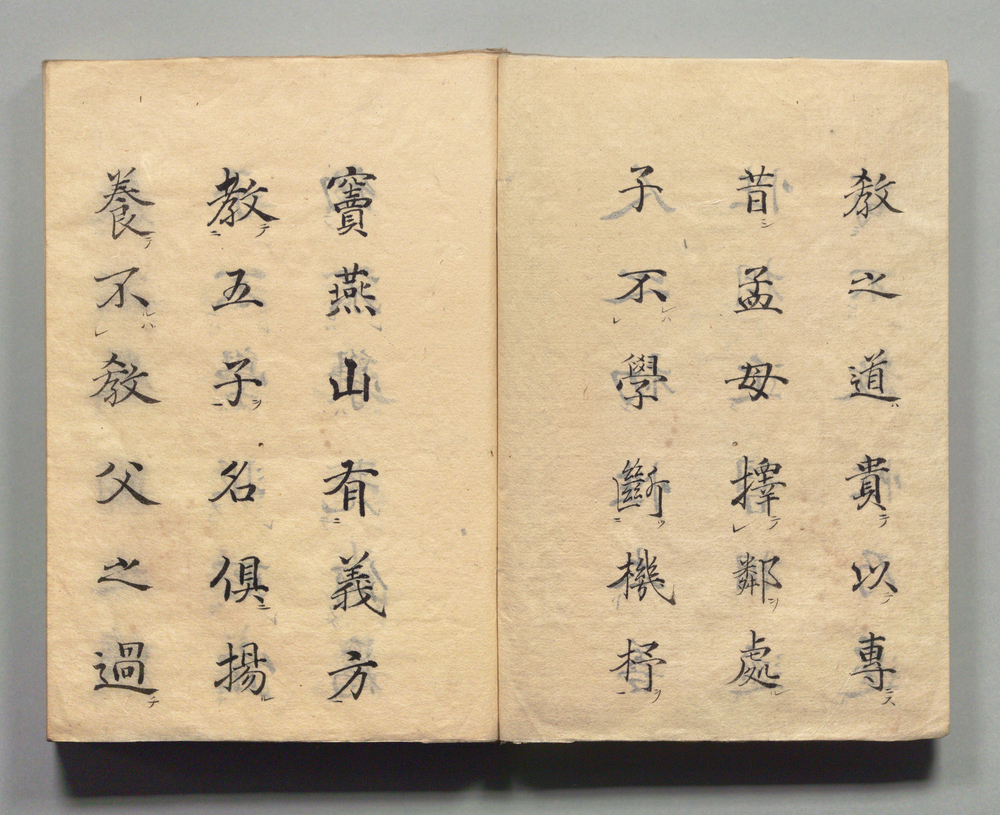 教之道貴以專
昔孟母擇鄰處
子不學斷機杼
竇燕山有義方
教五子名俱揚
養不教父之過